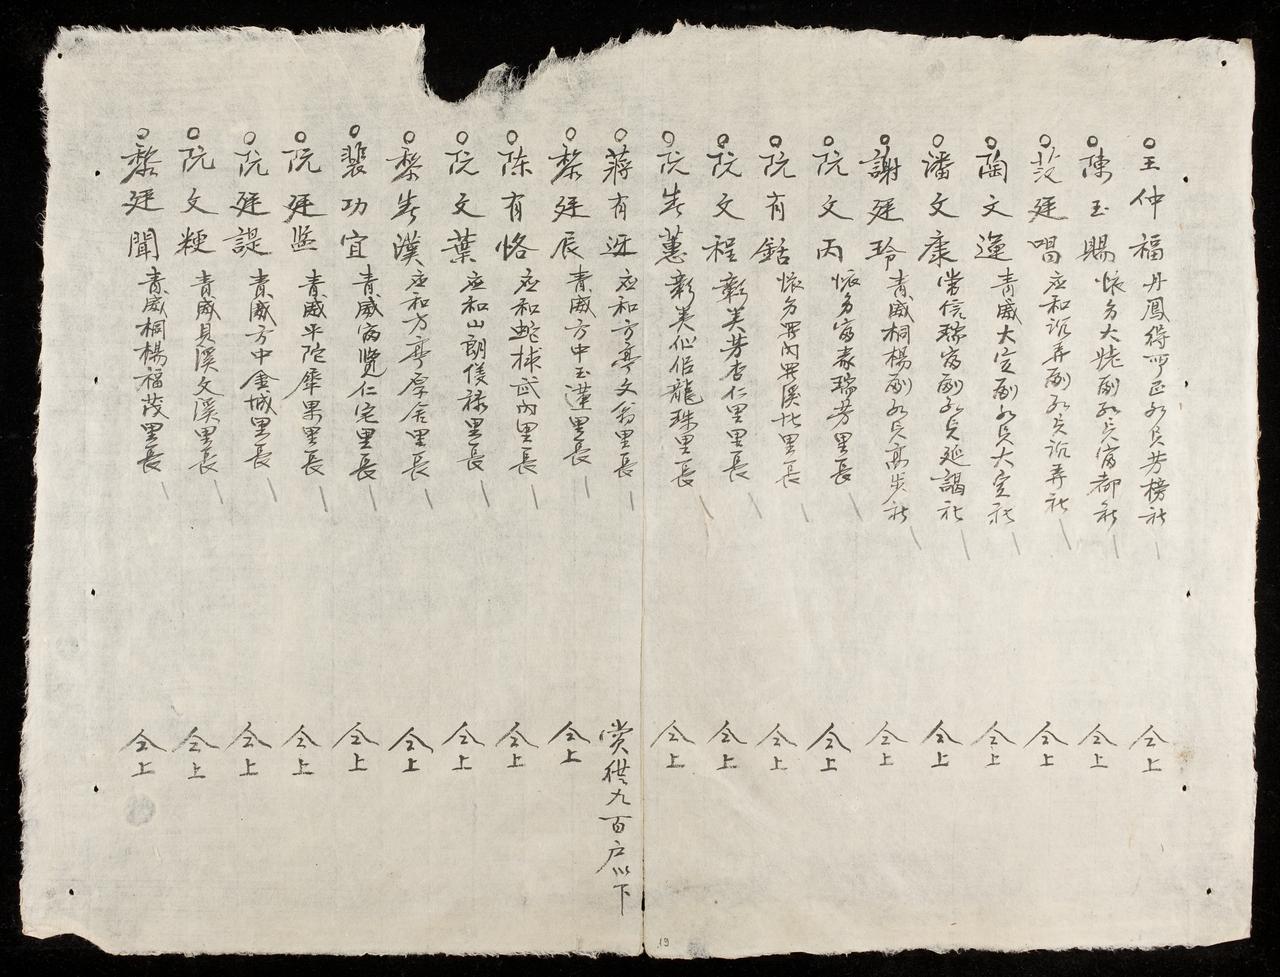 王仲福 丹鳳得所正社長芳榜社 仝上
陳玉賜 懷安大姥副社長富都社 仝上
段廷唱 应和訟弄副社長訟弄社 仝上
陶文運 青威大定副社長大定社 仝上
潘文康 常信瑞富副社長延謁社 仝上
謝廷玲 青威桐楊副社長萬步社 仝上
阮文丙 懷安富森瑞芳里長 仝上
阮有銛 懷安 里長 仝上
阮文程 彰美芳杏仁里里長 仝上
阮先蕙 彰美仙侶龍珠里長 仝上
蔣有逛 应和方亭文翁里長 賞供九百户以下
黎廷辰 青威方中玉蓮里長 仝上
陈有恪 应和 武內里長 仝上
阮文葉 应和山朗儀祿里長 仝上
黎先漢 应和方亭厚舍里長 仝上
裴功宜 青威富覽仁宅里長 仝上
阮廷监 青威平陀犀果里長 仝上
阮廷諟 青威方中金城里長 仝上
阮文粳 青威貝溪文溪里長 仝上
黎廷聞 青威桐楊福茂里長 仝上
19